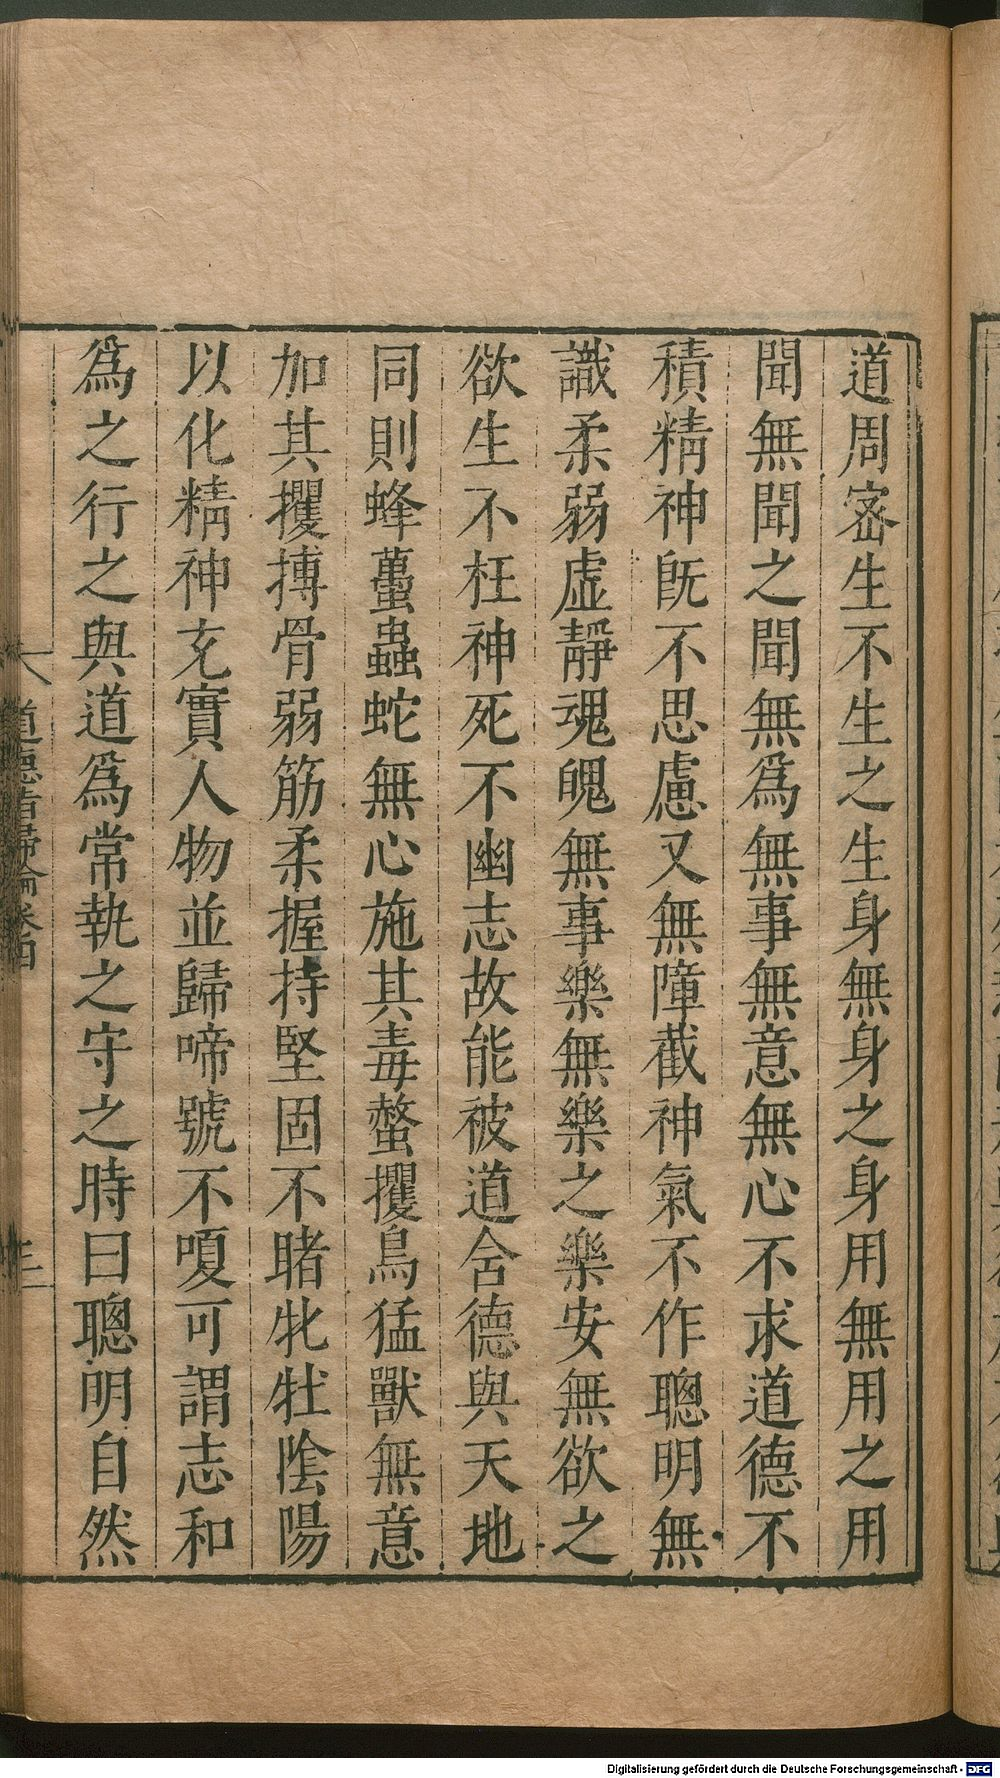 道周密生不生之生身無身之身用無用之用
聞無聞之聞無爲無事無意無心不求道德不
積精神旣不思慮又無障截神氣不作聰明無
識柔弱虛靜魂魄無事樂無樂之樂安無欲之
欲生不枉神死不幽志故能被道含德與天地
同則蜂蠆蟲蛇無心施其毒螫攫鳥猛獸無意
加其攫搏骨弱筋柔握持堅固不睹牝牡陰陽
以化精神充實人物並歸啼號不嗄可謂志和
爲之行之與道爲常執之守之時曰聰明自然
道德指歸論卷四
三
Digitalisierung gefördert durch die Deutsche Forschungsgemeinschaft - DFG